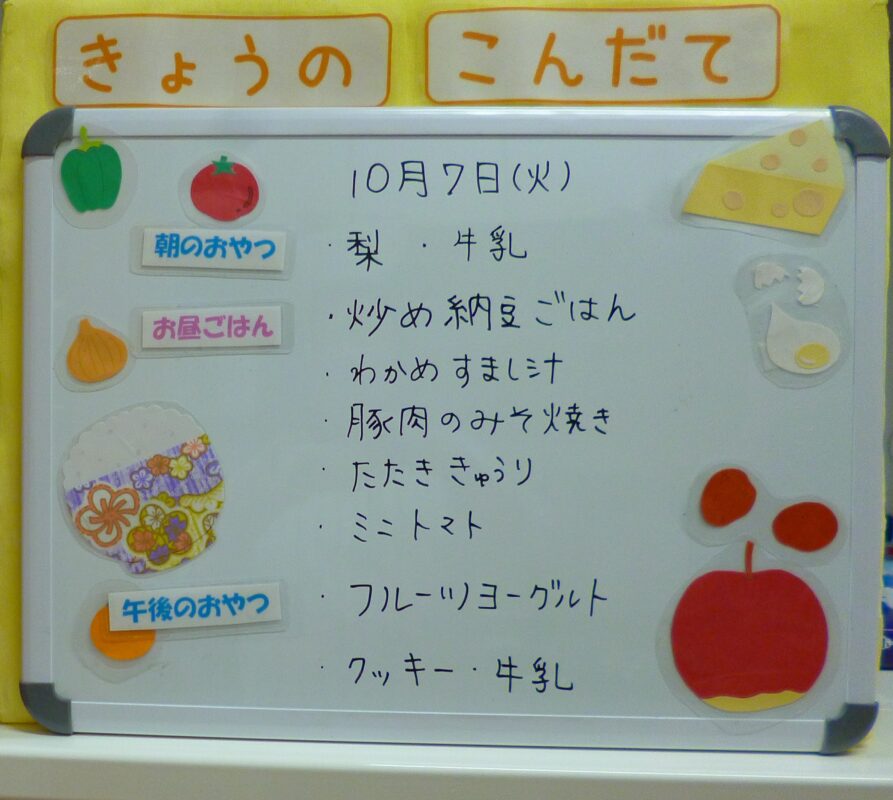 きょうの こんだて
10月7日(火)
朝のおやつ ・梨 ・牛乳
お昼ごはん ・炒め納豆ごはん
・わかめすまし汁
・豚肉のみそ焼き
・たたききゅうり
・ミニトマト
午後のおやつ ・フルーツヨーグルト
・クッキー・牛乳